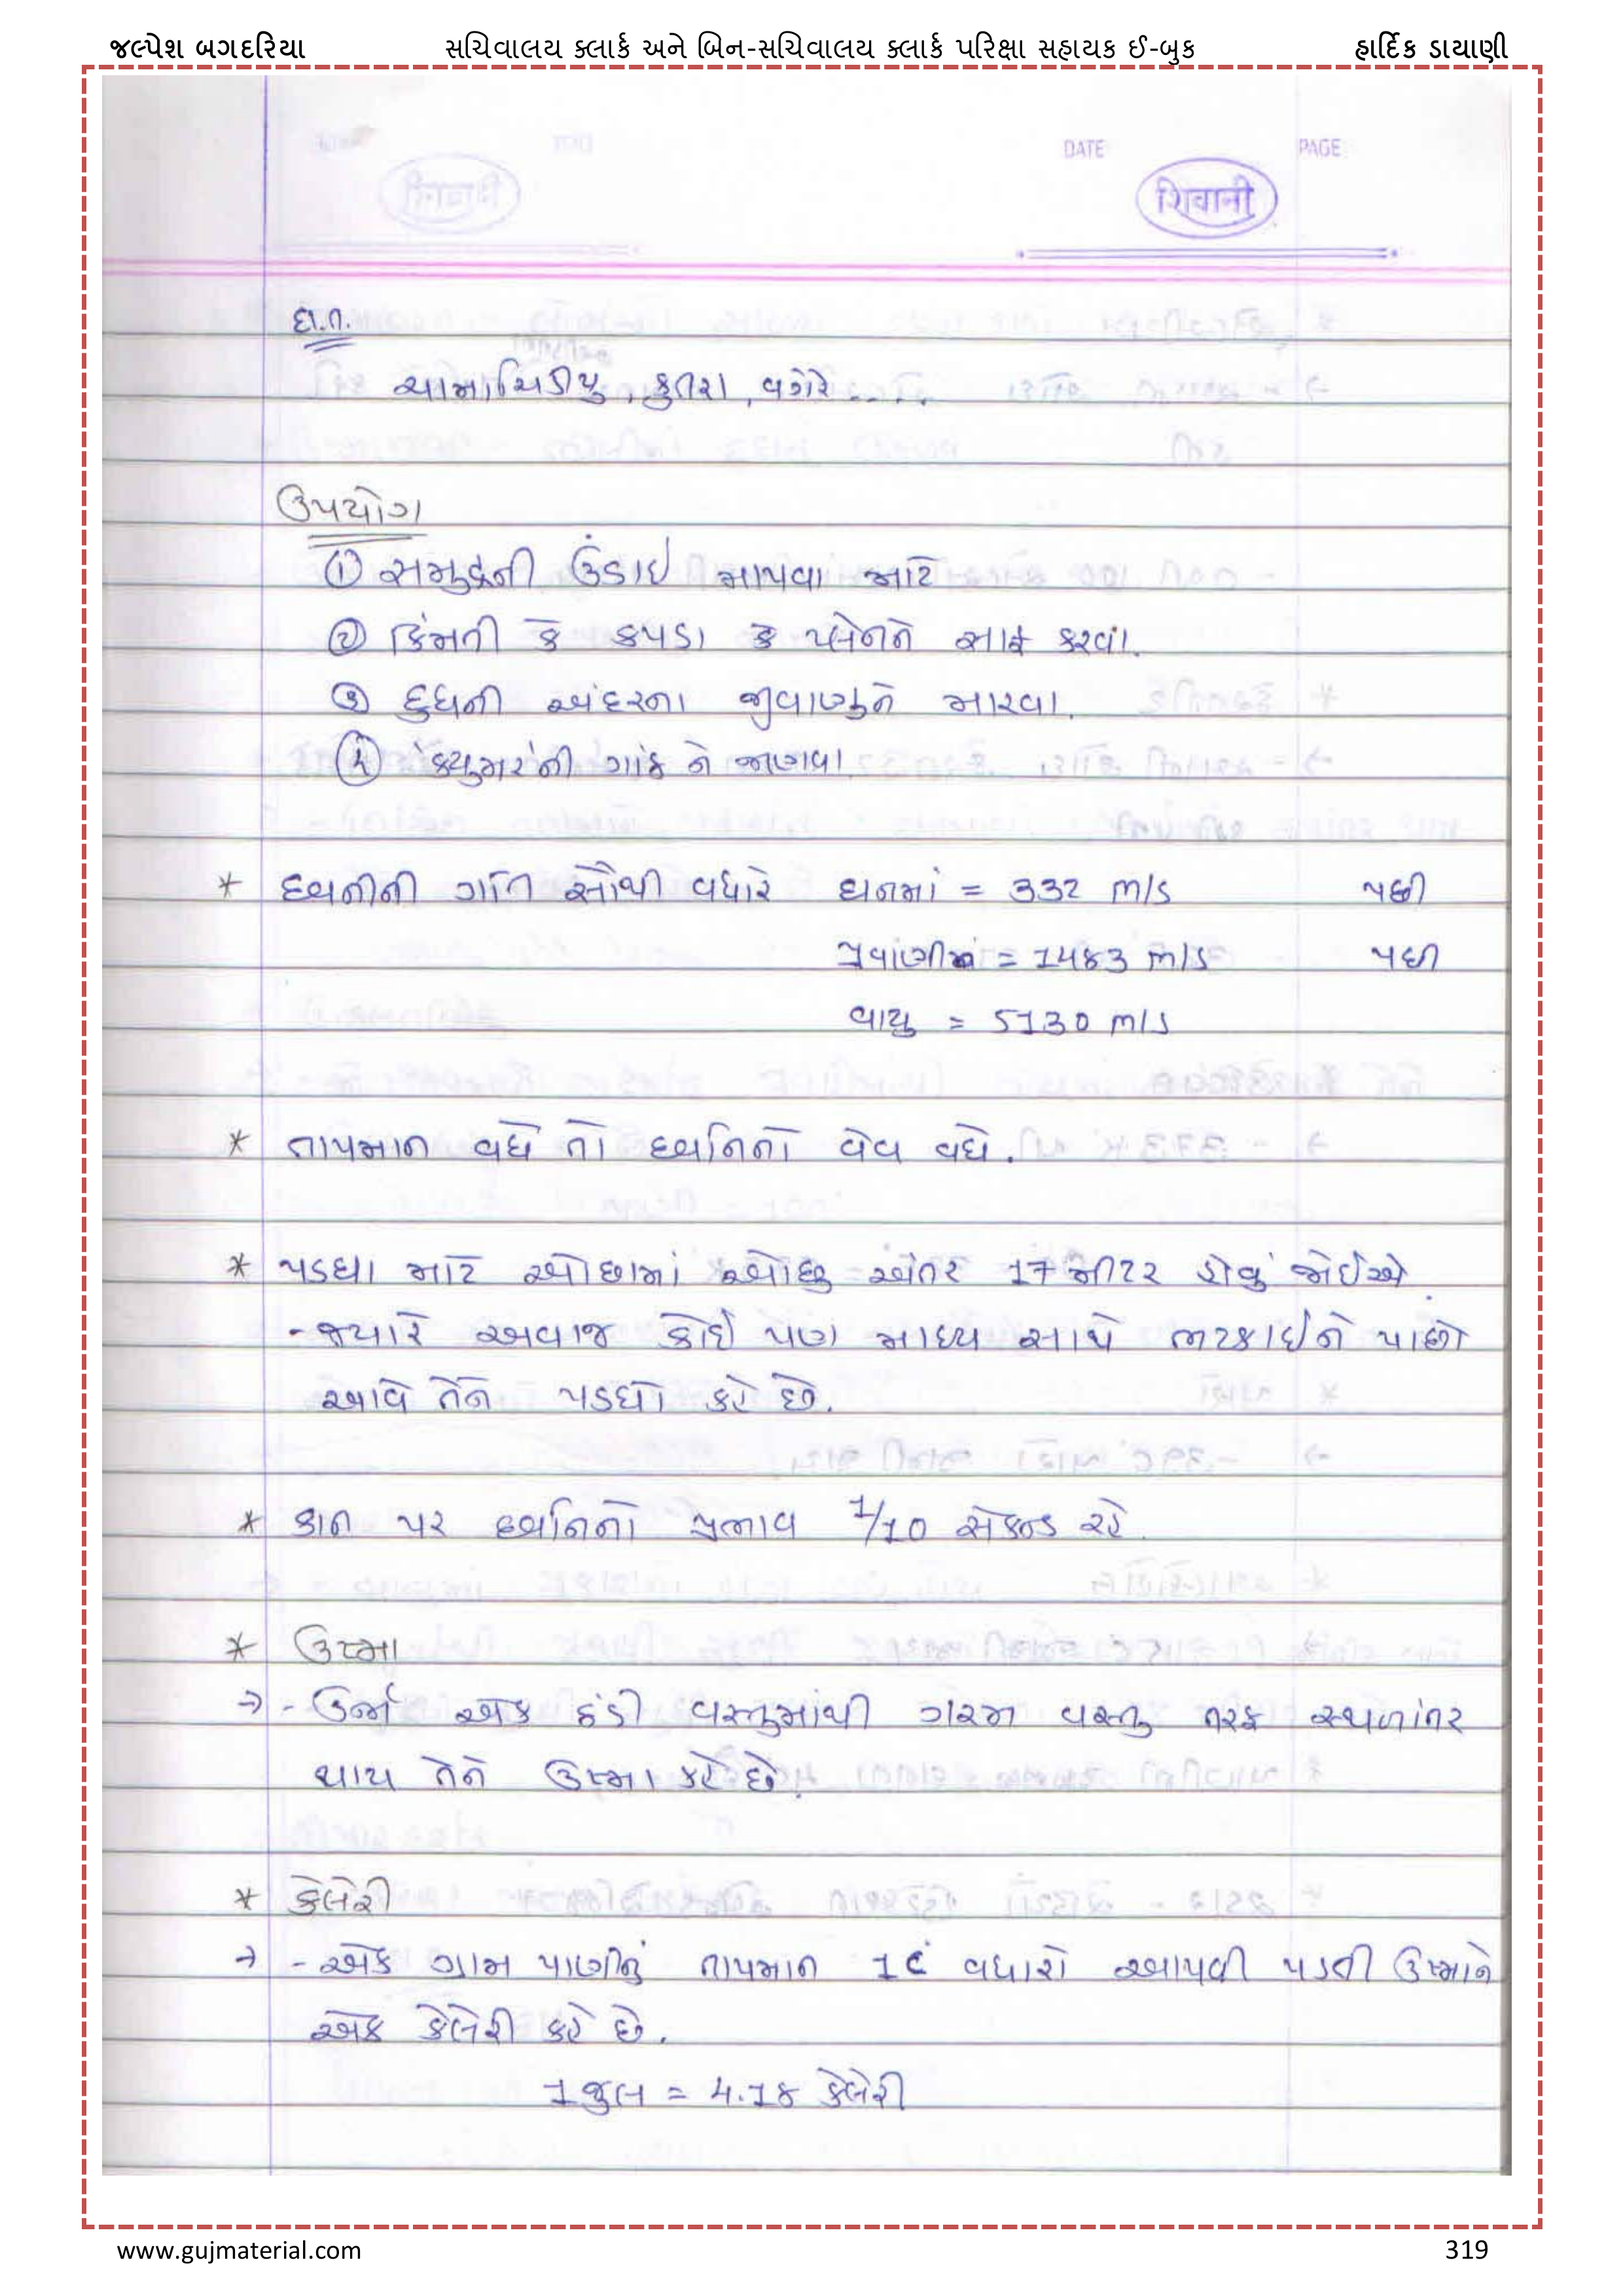 જલ્પેશ બગદરિયા સચિવાલય ક્લાર્ક અને બિન-સચિવાલય ક્લાર્ક પરિક્ષા સહાયક ઈ-બુક હાર્દિક ડાયાણી
DATE PAGE
शिवानी
દા.ત.
ચામાચિડીયુ, કુતરા, વગેરે.....
ઉપયોગ
① સમુદ્રની ઉંડાઇ માપવા માટે
② કિંમતી કે કપડા કે પ્લેનને સાફ કરવાં.
③ દુધની અંદરના જીવાણુને મારવા.
④ ગાંઠ ને જાણવા.
* ધ્વનીની ગતિ સૌથી વધારે ઘનમાં = 332 m/s પછી
= 1483 m/s પછી
વાયુ = 5130 m/s
* તાપમાન વધે તો ધ્વનિનો વેવ વધે.
* પડઘા માટે ઓછામાં ઓછુ અંતર 17 મીટર હોવું જોઈએ.
- જ્યારે અવાજ કોઈ પણ માધ્ય સાથે ભટકાઈને પાછો
આવે તેને પડઘો કહે છે.
* કાન પર ધ્વનિનો પ્રભાવ 1/10 સેકન્ડ રહે.
* ઉષ્મા
→ - ઉર્જા એક ઠંડી વસ્તુમાંથી ગરમ વસ્તુ તરફ સ્થળાંતર
થાય તેને ઉષ્મા કહે છે.
* કેલેરી
→ - એક ગ્રામ પાણીનું તાપમાન 1c વધારો આપવી પડતી ઉષ્માને
એક કેલેરી કહે છે.
1 જુલ = 4.18 કેલેરી
www.gujmaterial.com 319